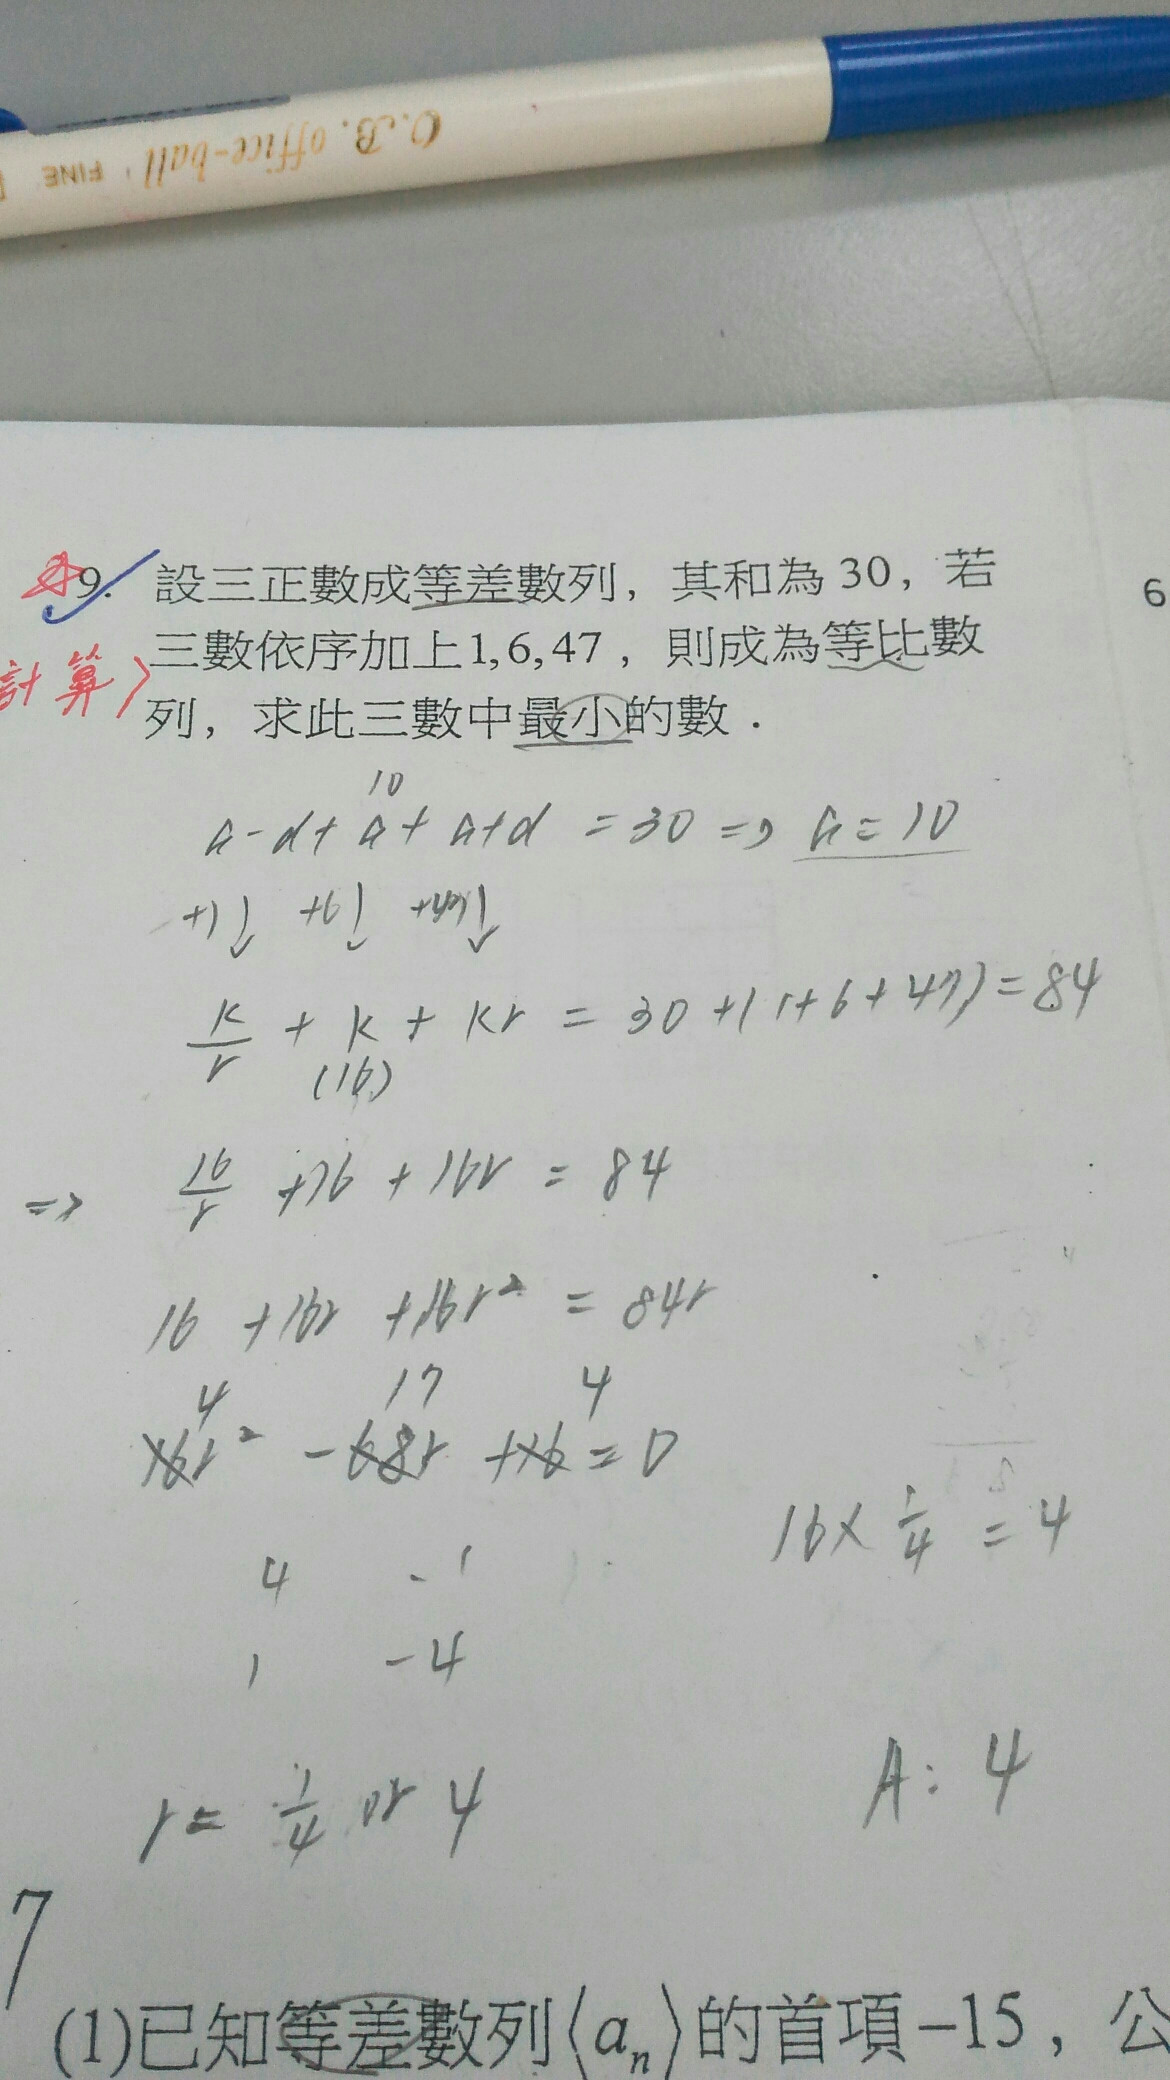 O.B. office-ball FINE
9. 設三正數成等差數列，其和為 30，若
三數依序加上 1, 6, 47，則成為等比數
列，求此三數中最小的數．
計算
6
10
a-d+a+a+d = 30 => a = 10
+1 +6 +47
k/r + k + kr = 30+(1+6+47)=84
(16)
=> 16/r +16 +16r = 84
16 +16r +16r² = 84r
4 17 4
16r² -68r +16 = 0
4 -1
1 -4
16× 1/4 = 4
r = 1/4 or 4
A: 4
7
(1)已知等差數列⟨aₙ⟩的首項−15，公